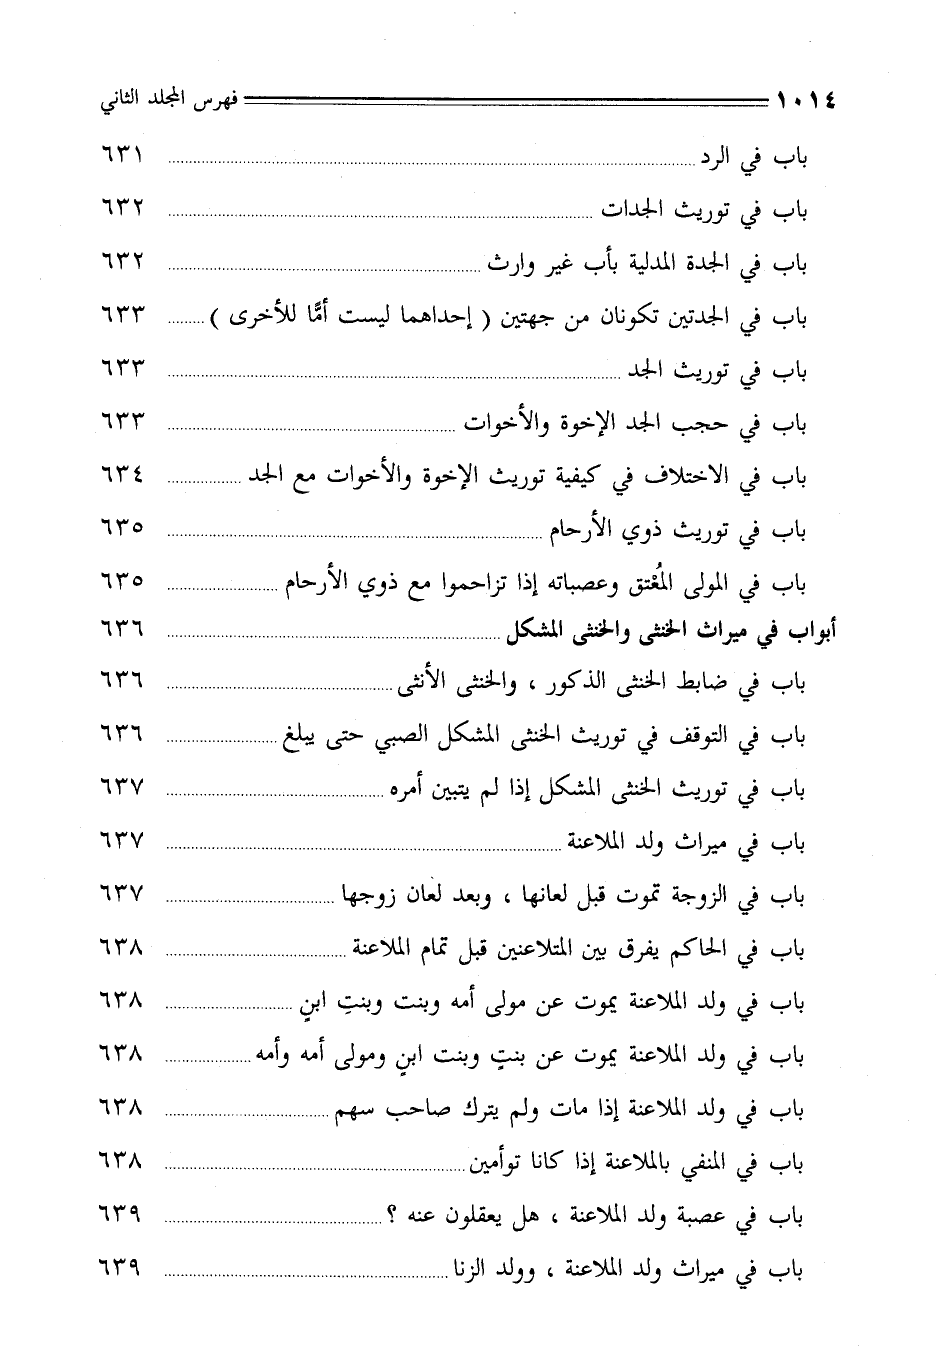 ١٠١٤ فهرس المجلد الثاني
باب في الرد ٦٣١
باب في توريث الجدات ٦٣٢
باب في الجدة المدلية بأب غير وارث ٦٣٢
باب في الجدتين تكونان من جهتين ( إحداهما ليست أمًّا للأخرى ) ٦٣٣
باب في توريث الجد ٦٣٣
باب في حجب الجد الإخوة والأخوات ٦٣٣
باب في الاختلاف في كيفية توريث الإخوة والأخوات مع الجد ٦٣٤
باب في توريث ذوي الأرحام ٦٣٥
باب في المولى المُعْتق وعصباته إذا تزاحموا مع ذوي الأرحام ٦٣٥
أبواب في ميراث الخنثى والخنثى المشكل ٦٣٦
باب في ضابط الخنثى الذكور ، والخنثى الأنثى ٦٣٦
باب في التوقف في توريث الخنثى المشكل الصبي حتى يبلغ ٦٣٦
باب في توريث الخنثى المشكل إذا لم يتبين أمره ٦٣٧
باب في ميراث ولد الملاعنة ٦٣٧
باب في الزوجة تموت قبل لعانها ، وبعد لعان زوجها ٦٣٧
باب في الحاكم يفرق بين المتلاعنين قبل تمام الملاعنة ٦٣٨
باب في ولد الملاعنة يموت عن مولى أمه وبنت وبنتِ ابنٍ ٦٣٨
باب في ولد الملاعنة يموت عن بنتٍ وبنت ابنٍ ومولى أمه وأمه ٦٣٨
باب في ولد الملاعنة إذا مات ولم يترك صاحب سهم ٦٣٨
باب في المنفي بالملاعنة إذا كانا توأمين ٦٣٨
باب في عصبة ولد الملاعنة ، هل يعقلون عنه ؟ ٦٣٩
باب في ميراث ولد الملاعنة ، وولد الزنا ٦٣٩